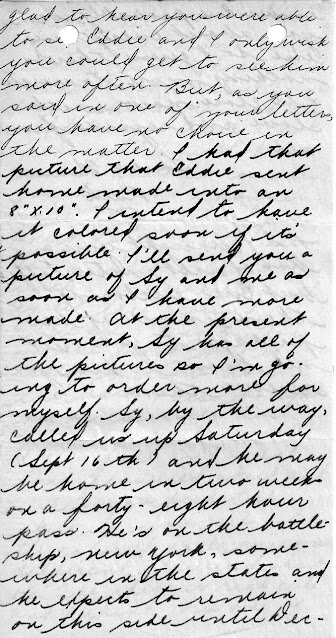 glad to hear you were able
to se  Eddie and I only wish
you could get to see him
more often. But, as you
said in one of your letters,
you have no choice in
the matter. I had that
picture that Eddie sent
home made into an
8" X 10". I intend to have
it colored soon if it's
possible. I'll send you a
picture of Sy and me as
soon as I have more
made. At the present
moment, Sy has all of
the pictures so I'm go-
ing to order more for
myself. Sy, by the way,
called us up Saturday
(Sept 16th) and he may
be home in two weeks
on a forty-eight hour
pass. He's on the battle-
ship, New York, some-
where in the states and
he expects to remain
on this side until Dec-